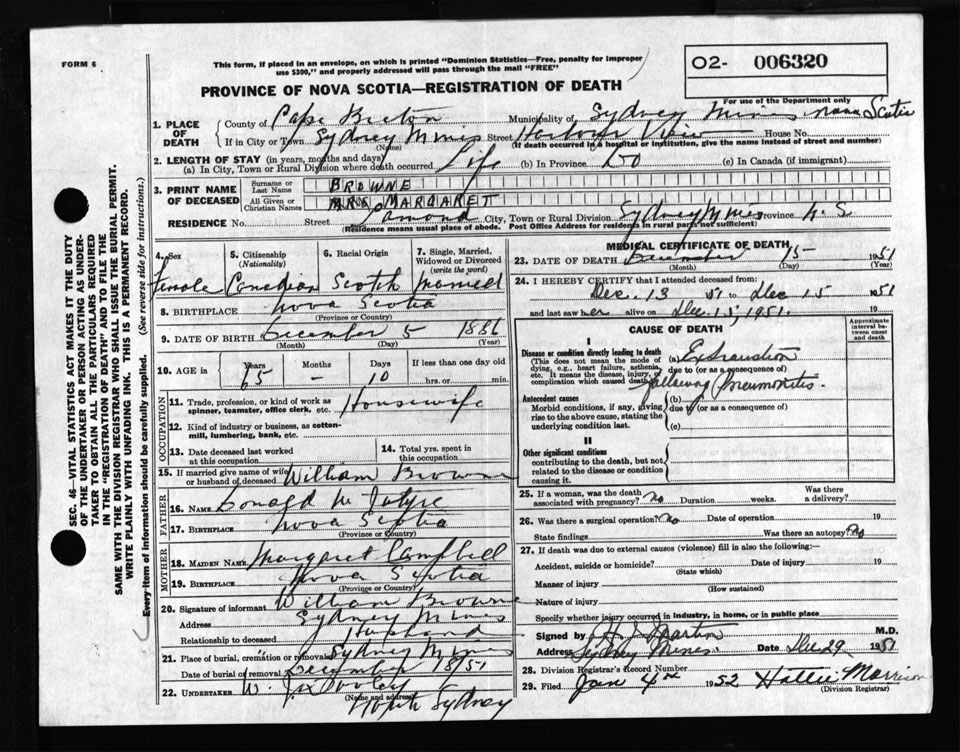 FORM 6
This form, if placed in an envelope, on which is printed "Dominion Statistics—Free, penalty for improper
use $300," and properly addressed will pass through the mail "FREE"
O2- 006320
PROVINCE OF NOVA SCOTIA—REGISTRATION OF DEATH
For use of the Department only
1. PLACE OF DEATH
County of Cape Breton Municipality of Sydney Mines Nova Scotia
If in City or Town Sydney Mines Street Harbour View House No.
(Name) (If death occurred in a hospital or institution, give the name instead of street and number)
2. LENGTH OF STAY (in years, months and days)
(a) In City, Town or Rural Division where death occurred Life (b) In Province Do (c) In Canada (if immigrant)
3. PRINT NAME OF DECEASED
Surname or Last Name BROWNE
All Given or Christian Names MRS MARGARET
RESIDENCE No. Street City, Town or Rural Division Sydney Mines Province N. S.
(Residence means usual place of abode. Post Office Address for residents in rural parts not sufficient)
4. Sex Female
5. Citizenship (Nationality) Canadian
6. Racial Origin Scotch
7. Single, Married, Widowed or Divorced (write the word) Married
8. BIRTHPLACE Nova Scotia
(Province or Country)
9. DATE OF BIRTH December 5 1886
(Month) (Day) (Year)
10. AGE in Years 65 Months – Days 10 If less than one day old hrs. or min.
OCCUPATION
11. Trade, profession, or kind of work as spinner, teamster, office clerk, etc. Housewife
12. Kind of industry or business, as cotton-mill, lumbering, bank, etc.
13. Date deceased last worked at this occupation
14. Total yrs. spent in this occupation
15. If married give name of wife or husband of deceased William Browne
FATHER
16. NAME Donald McIntyre
17. BIRTHPLACE Nova Scotia
(Province or Country)
MOTHER
18. MAIDEN NAME Margaret Campbell
19. BIRTHPLACE Nova Scotia
(Province or Country)
20. Signature of informant William Browne
Address Sydney Mines
Relationship to deceased Husband
21. Place of burial, cremation or removal Sydney Mines
Date of burial or removal December 18/51
22. UNDERTAKER W. J. Dooley
(Name and address)
North Sydney
MEDICAL CERTIFICATE OF DEATH
23. DATE OF DEATH December 15 1951
(Month) (Day) (Year)
24. I HEREBY CERTIFY that I attended deceased from:
Dec. 13 51 to Dec 15 1951
and last saw her alive on Dec. 15, 1951.
CAUSE OF DEATH
Approximate interval between onset and death
I
Disease or condition directly leading to death
(This does not mean the mode of dying, e.g., heart failure, asthenia, etc. It means the disease, injury, or complication which caused death.)
(a) Exhaustion
due to (or as a consequence of)
following Pneumonitis.
Antecedent causes
Morbid conditions, if any, giving rise to the above cause, stating the underlying condition last.
(b)
due to (or as a consequence of)
(c)
II
Other significant conditions
contributing to the death, but not related to the disease or condition causing it.
25. If a woman, was the death associated with pregnancy? No Duration weeks. Was there a delivery?
26. Was there a surgical operation? No Date of operation 19
State findings Was there an autopsy? No
27. If death was due to external causes (violence) fill in also the following:—
Accident, suicide or homicide? Date of injury 19
(State which)
Manner of injury
(How sustained)
Nature of injury
Specify whether injury occurred in industry, in home, or in public place
Signed by M.D.
Address Sydney Mines Date Dec 29 1951
28. Division Registrar's Record Number
29. Filed Jan 4th 1952 Hattie Morrison
(Division Registrar)
SEC. 46—VITAL STATISTICS ACT MAKES IT THE DUTY
OF THE UNDERTAKER OR PERSON ACTING AS UNDER-
TAKER TO OBTAIN ALL THE PARTICULARS REQUIRED
IN THE "REGISTRATION OF DEATH" AND TO FILE THE
SAME WITH THE DIVISION REGISTRAR WHO SHALL ISSUE THE BURIAL PERMIT.
WRITE PLAINLY WITH UNFADING INK. THIS IS A PERMANENT RECORD.
Every item of information should be carefully supplied. (See reverse side for instructions.)